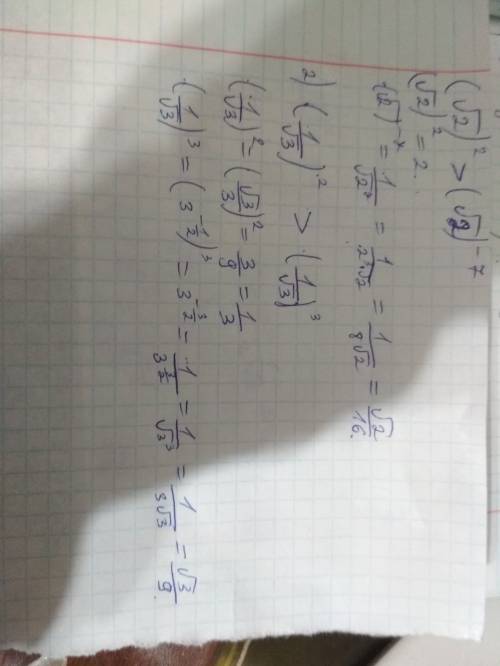 (√2)² > (√2)⁻⁷
(√2)² = 2.
(√2)⁻⁷ = 1/√2⁷ = 1/2³√2 = 1/8√2 = √2/16.
2) (1/√3)² > (1/√3)³
(1/√3)² = (√3/3)² = 3/9 = 1/3
(1/√3)³ = (3^(-1/2))³ = 3^(-3/2) = 1/3^(3/2) = 1/√3³ = 1/3√3 = √3/9.